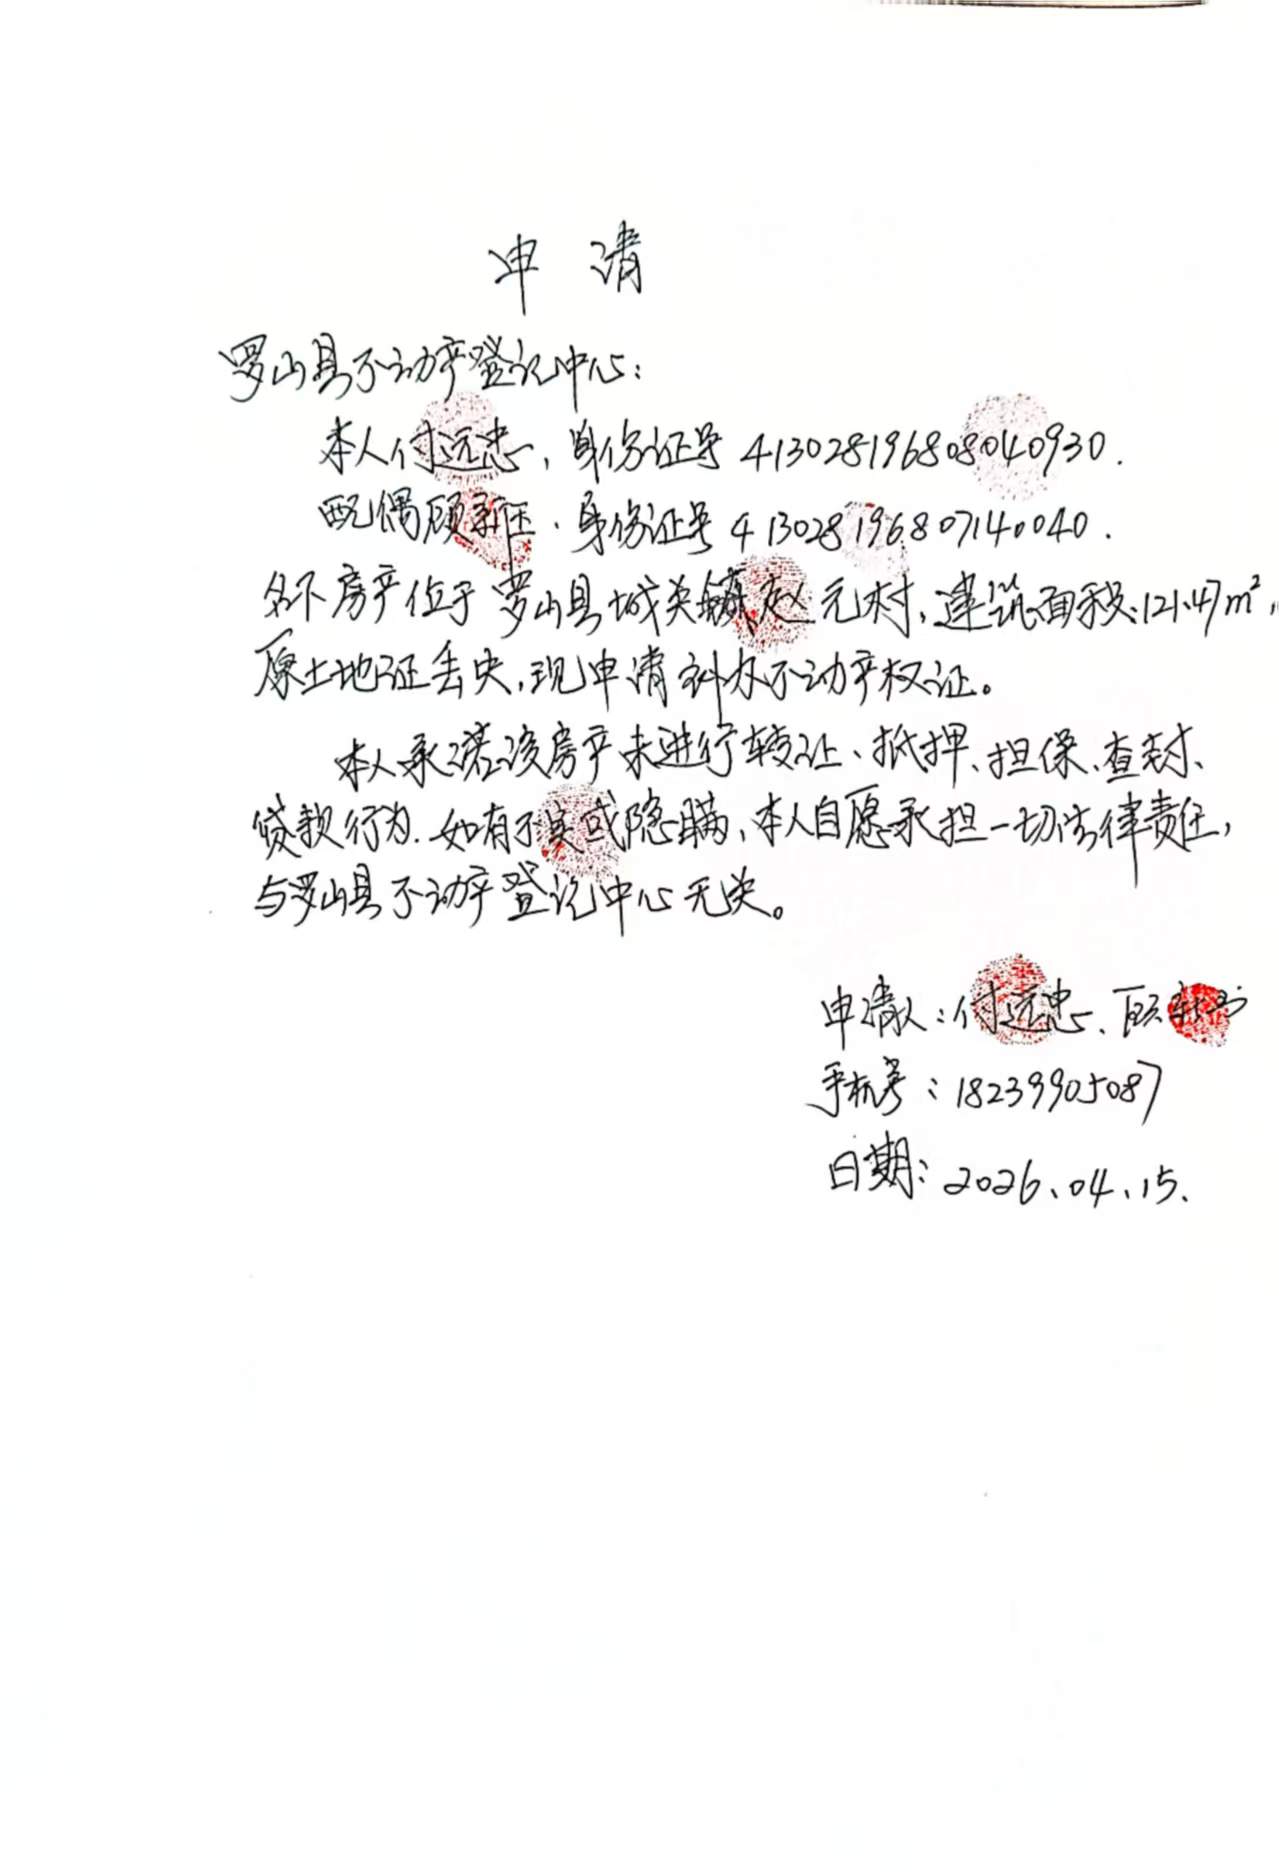 申 请
罗山县不动产登记中心：
本人付远忠，身份证号 413028196808040930.
配偶顾新玉、身份证号 413028196807140040.
名下房产位于罗山县城关镇赵元村，建筑面积：121.47m²，
原土地证丢失，现申请补办不动产权证。
本人承诺该房产未进行转让、抵押、担保、查封、
贷款行为.如有不实或隐瞒、本人自愿承担一切法律责任，
与罗山县不动产登记中心无关。
申请人：付远忠、顾新玉
手机号：18239905087
日期：2026、04、15、